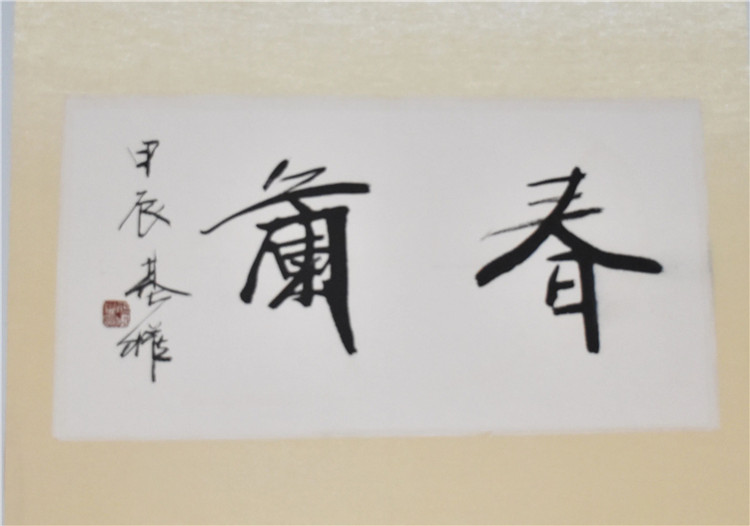 春蘭
甲辰基維